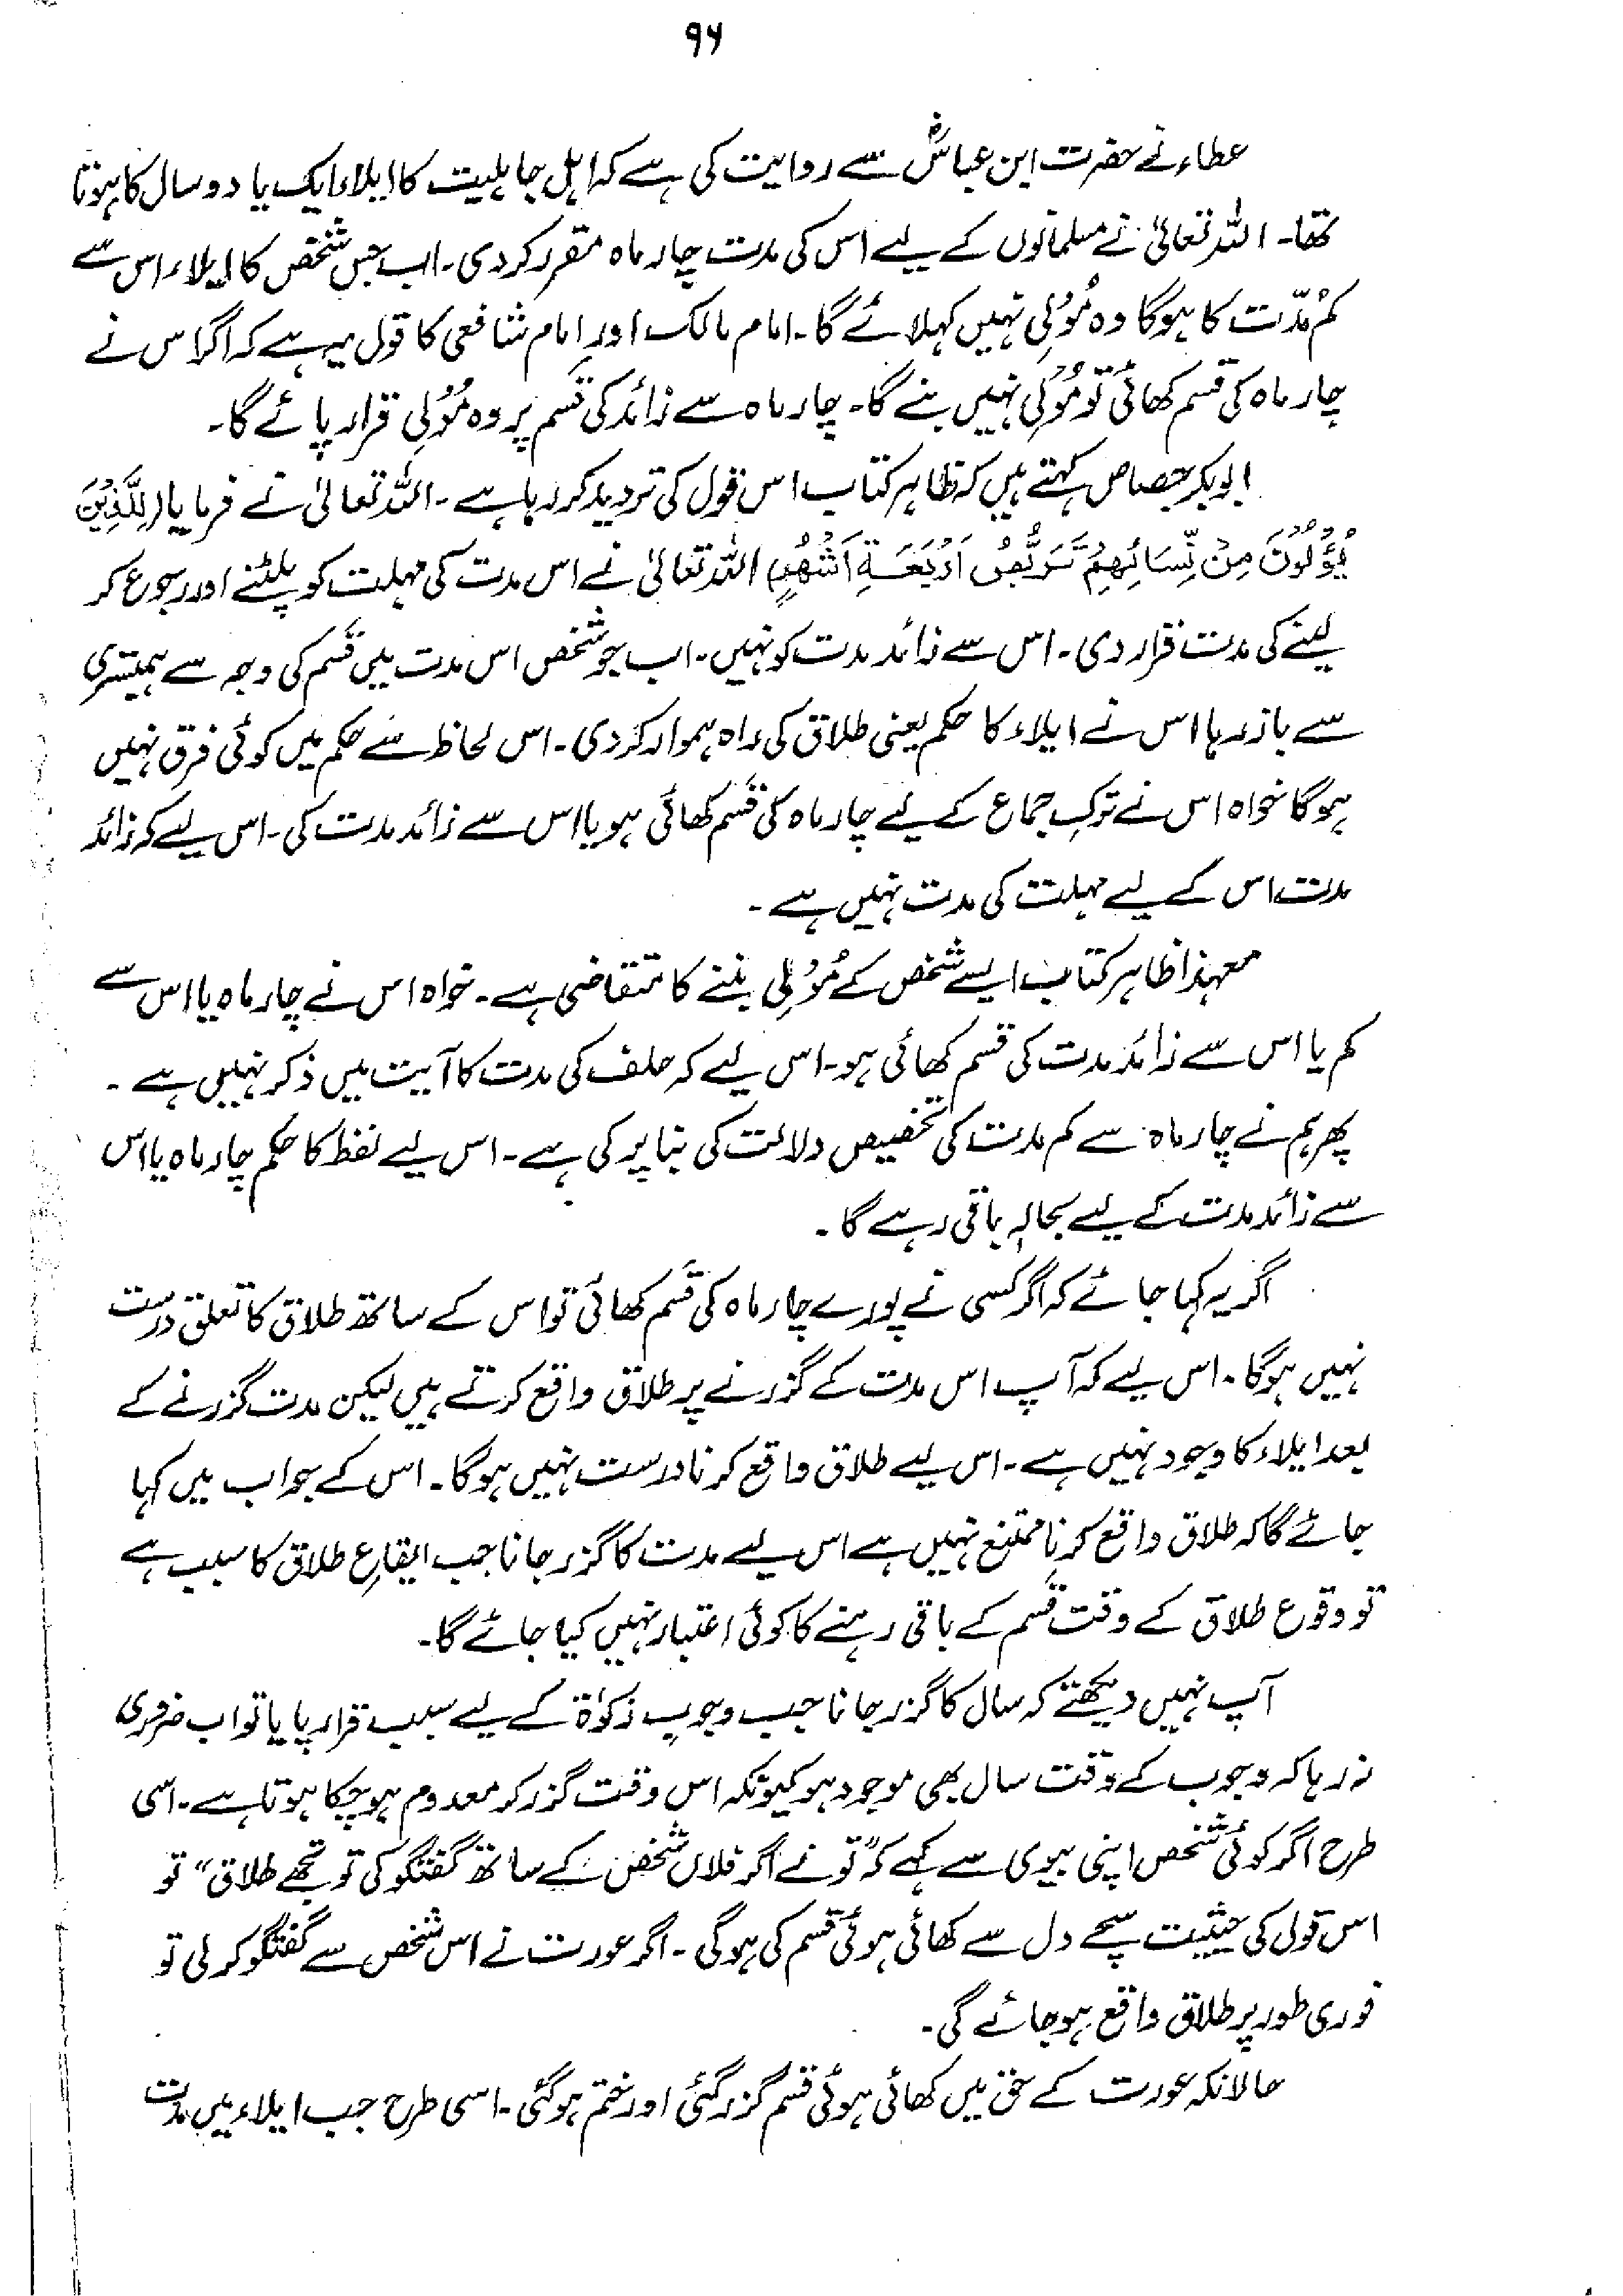 ۹۶
عطاء نے حضرت ابن عباسؓ سے روایت کی ہے کہ اہل جاہلیت کا ایلاء ایک یا دو سال کا ہوتا
تھا۔ اللہ تعالیٰ نے مسلمانوں کے لیے اس کی مدت چار ماہ مقرر کر دی۔ اب جس شخص کا ایلاء اس سے
کم مدّت کا ہوگا وہ مُوْلِی نہیں کہلائے گا۔ امام مالک اور امام شافعی کا قول یہ ہے کہ اگر اس نے
چار ماہ کی قسم کھائی تو مُوْلِی نہیں بنے گا۔ چار ماہ سے زائد کی قسم پر وہ مُوْلِی قرار پائے گا۔
ابوبکر جصاص کہتے ہیں کہ ظاہر کتاب اس قول کی تردید کر رہا ہے۔ اللہ تعالیٰ نے فرمایا (لِلَّذِیْنَ
یُؤْلُوْنَ مِنْ نِّسَائِھِمْ تَرَبُّصُ اَرْبَعَۃِ اَشْھُرٍ) اللہ تعالیٰ نے اس مدت کی مہلت کو پلٹنے اور رجوع کر
لینے کی مدت قرار دی۔ اس سے زائد مدت کو نہیں۔ اب جو شخص اس مدت میں قسم کی وجہ سے ہمبستری
سے باز رہا اس نے ایلاء کا حکم یعنی طلاق کی راہ ہموار کر دی۔ اس لحاظ سے حکم میں کوئی فرق نہیں
ہوگا خواہ اس نے ترکِ جماع کے لیے چار ماہ کی قسم کھائی ہو یا اس سے زائد مدت کی۔ اس لیے کہ زائد
مدت اس کے لیے مہلت کی مدت نہیں ہے۔
معہذا ظاہر کتاب ایسے شخص کے مُوْلِی بننے کا متقاضی ہے۔ خواہ اس نے چار ماہ یا اس سے
کم یا اس سے زائد مدت کی قسم کھائی ہو۔ اس لیے کہ حلف کی مدت کا آیت میں ذکر نہیں ہے۔
پھر ہم نے چار ماہ سے کم مدت کی تخصیص دلالت کی بنا پر کی ہے۔ اس لیے لفظ کا حکم چار ماہ یا اس
سے زائد مدت کے لیے بحالہٖ باقی رہے گا۔
اگر یہ کہا جائے کہ اگر کسی نے پورے چار ماہ کی قسم کھائی تو اس کے ساتھ طلاق کا تعلق درست
نہیں ہوگا۔ اس لیے کہ آپ اس مدت کے گزرنے پر طلاق واقع کرتے ہیں لیکن مدت گزرنے کے
بعد ایلاء کا وجود نہیں ہے۔ اس لیے طلاق واقع کرنا درست نہیں ہوگا۔ اس کے جواب میں کہا
جائے گا کہ طلاق واقع کرنا ممتنع نہیں ہے اس لیے مدت کا گزر جانا جب ایقاعِ طلاق کا سبب ہے
تو وقوع طلاق کے وقت قسم کے باقی رہنے کا کوئی اعتبار نہیں کیا جائے گا۔
آپ نہیں دیکھتے کہ سال کا گزر جانا جب وجوبِ زکوٰۃ کے لیے سبب قرار پایا تو اب ضروری
نہ رہا کہ وجوب کے وقت سال بھی موجود ہو کیونکہ اس وقت گزر کر معدوم ہو چکا ہوتا ہے۔ اسی
طرح اگر کوئی شخص اپنی بیوی سے کہے کہ "تو نے اگر فلاں شخص کے ساتھ گفتگو کی تو تجھے طلاق" تو
اس قول کی حیثیت سچے دل سے کھائی ہوئی قسم کی ہوگی۔ اگر عورت نے اس شخص سے گفتگو کر لی تو
فوری طور پر طلاق واقع ہو جائے گی۔
حالانکہ عورت کے حق میں کھائی ہوئی قسم گزر گئی اور ختم ہو گئی۔ اسی طرح جب ایلاء میں مدت